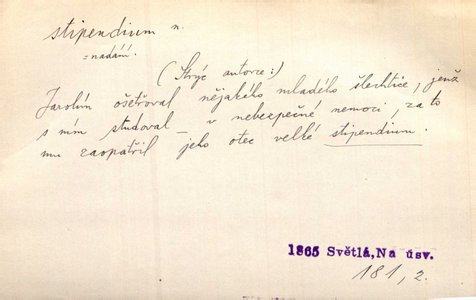 stipendium n.
= nadání.
(Strýc autorce:)
Jarolím ošetřoval nějakého mladého šlechtice, jenž
s ním studoval – v nebezpečné nemoci, za to
mu zaopatřil jeho otec velké stipendium.
1865 Světlá, Na úsv.
181, 2.